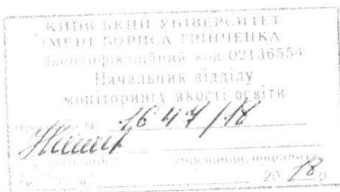 КИЇВСЬКИЙ УНІВЕРСИТЕТ
ІМЕНІ БОРИСА ГРІНЧЕНКА
Ідентифікаційний код 02136554
Начальник відділу
моніторингу якості освіти
№ 1647/18
20 18 р.